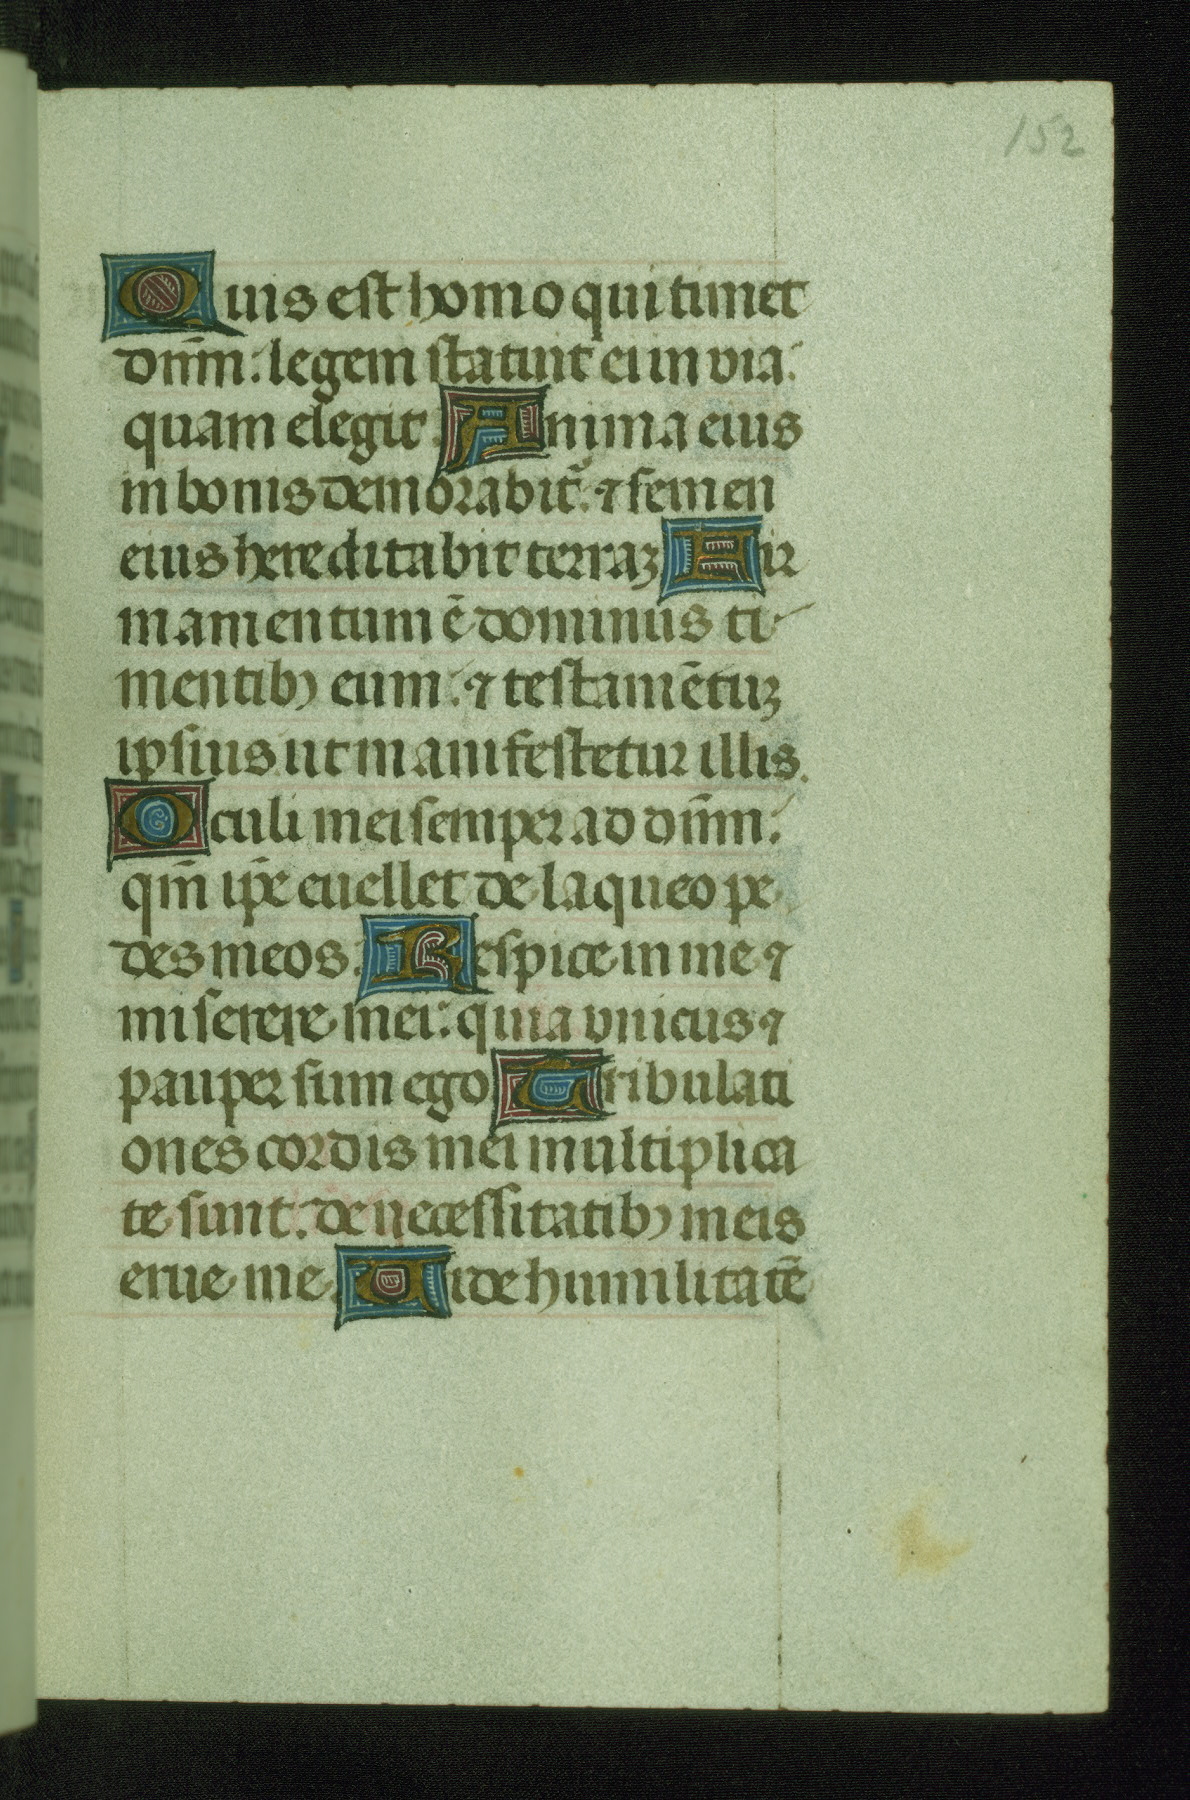 152
Quis est homo qui timet
dn̄m: legem statuit ei in via
quam elegit. Anima eius
in bonis demorabit᷑: ⁊ semen
eius hereditabit terraꝫ Fir
mamentum ē dominus ti
mentibꝰ eum: ⁊ testamētuꝫ
ipsius ut manifestetur illis.
Oculi mei semper ad dn̄m:
qm̄ ip̄e euellet de laqueo pe
des meos. Respice in me ⁊
miserere mei: quia vnicus ⁊
pauper sum ego Tribulati
ones cordis mei multiplica
te sunt: de necessitatibꝰ meis
erue me. Vide humilitatē